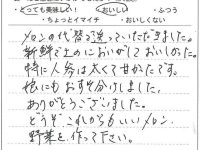 ・とっても美味しい！ ・おいしい ・ふつう
・ちょっとイマイチ ・おいしくない
メロンの代替で送っていただきました。
新鮮で土のにおいがしておいしかった。
特に人参は太くて甘かったです。
娘にもおすそ分けしました。
ありがとうございました。
どうぞこれからもいいメロン、
野菜を作って下さい。